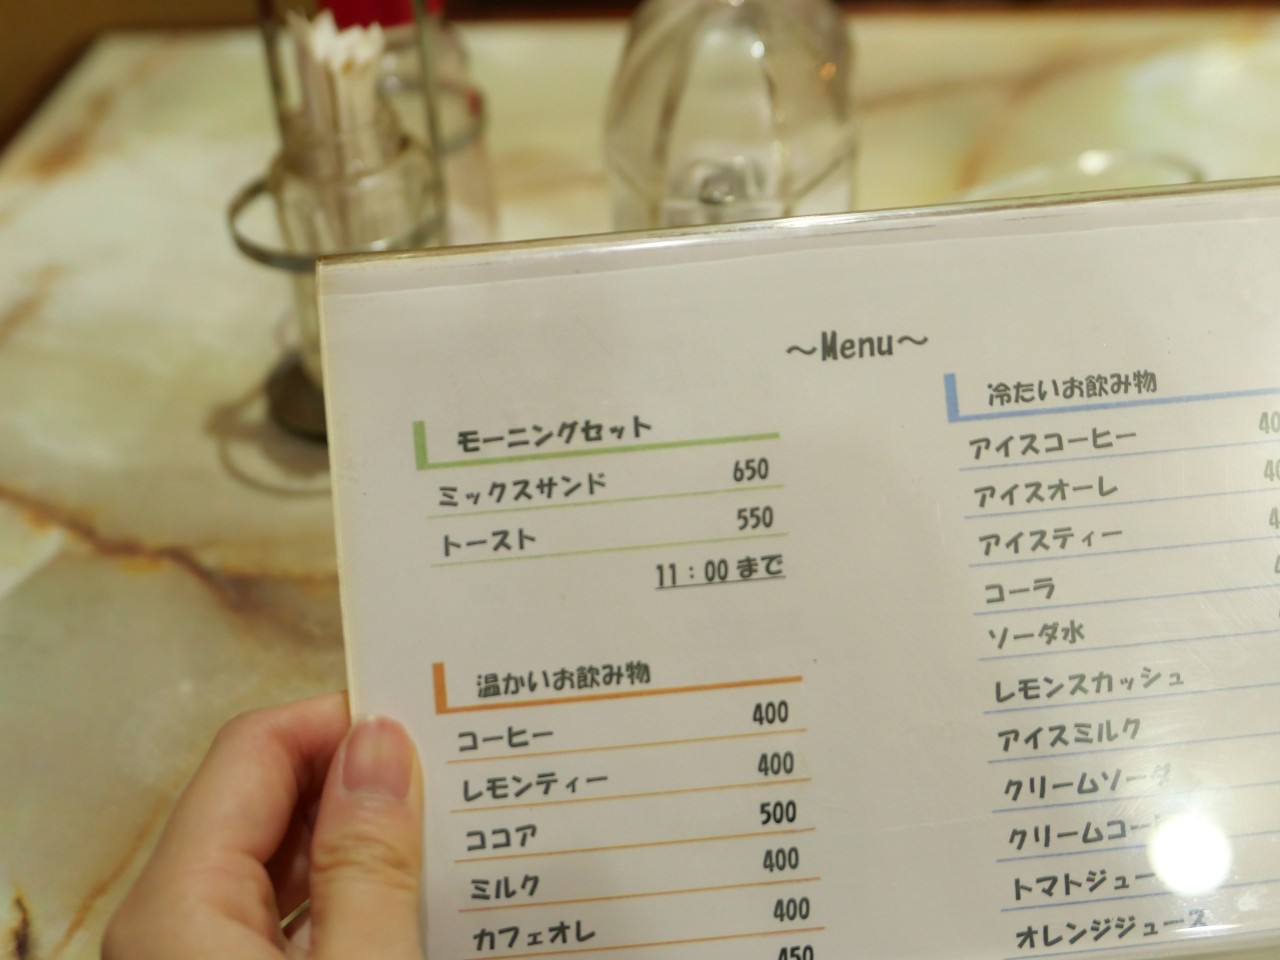 ～Menu～
モーニングセット
ミックスサンド 650
トースト 550
11：00 まで
温かいお飲み物
コーヒー 400
レモンティー 400
ココア 500
ミルク 400
カフェオレ 400
450
冷たいお飲み物
アイスコーヒー
アイスオーレ
アイスティー
コーラ
ソーダ水
レモンスカッシュ
アイスミルク
クリームソーダ
オレンジジュース